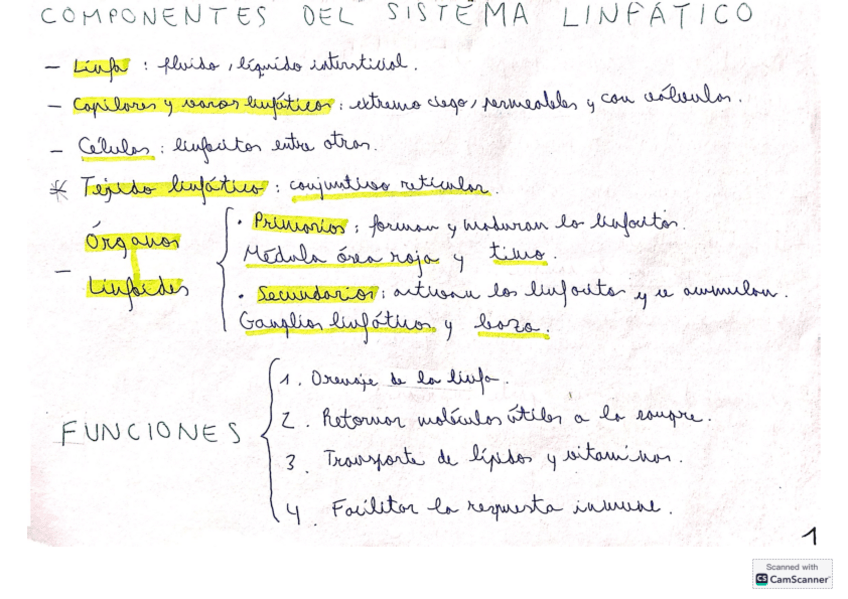 COMPONENTES DEL SISTEMA LINFÁTICO
- Linfa : fluido, líquido intersticial.
- Capilares y vasos linfáticos : extremo ciego, permeables y con válvulas.
- Células : linfocitos entre otros.
* Tejido linfático : conjuntivo reticular.
- Órganos Linfoides
· Primarios : forman y maduran los linfocitos.
Médula ósea roja y timo.
· Secundarios : activan los linfocitos y se acumulan.
Ganglios linfáticos y bazo.
FUNCIONES
1. Drenaje de la linfa.
2. Retornar moléculas útiles a la sangre.
3. Transporte de lípidos y vitaminas.
4. Facilitar la respuesta inmune.
1
Scanned with
CS CamScanner